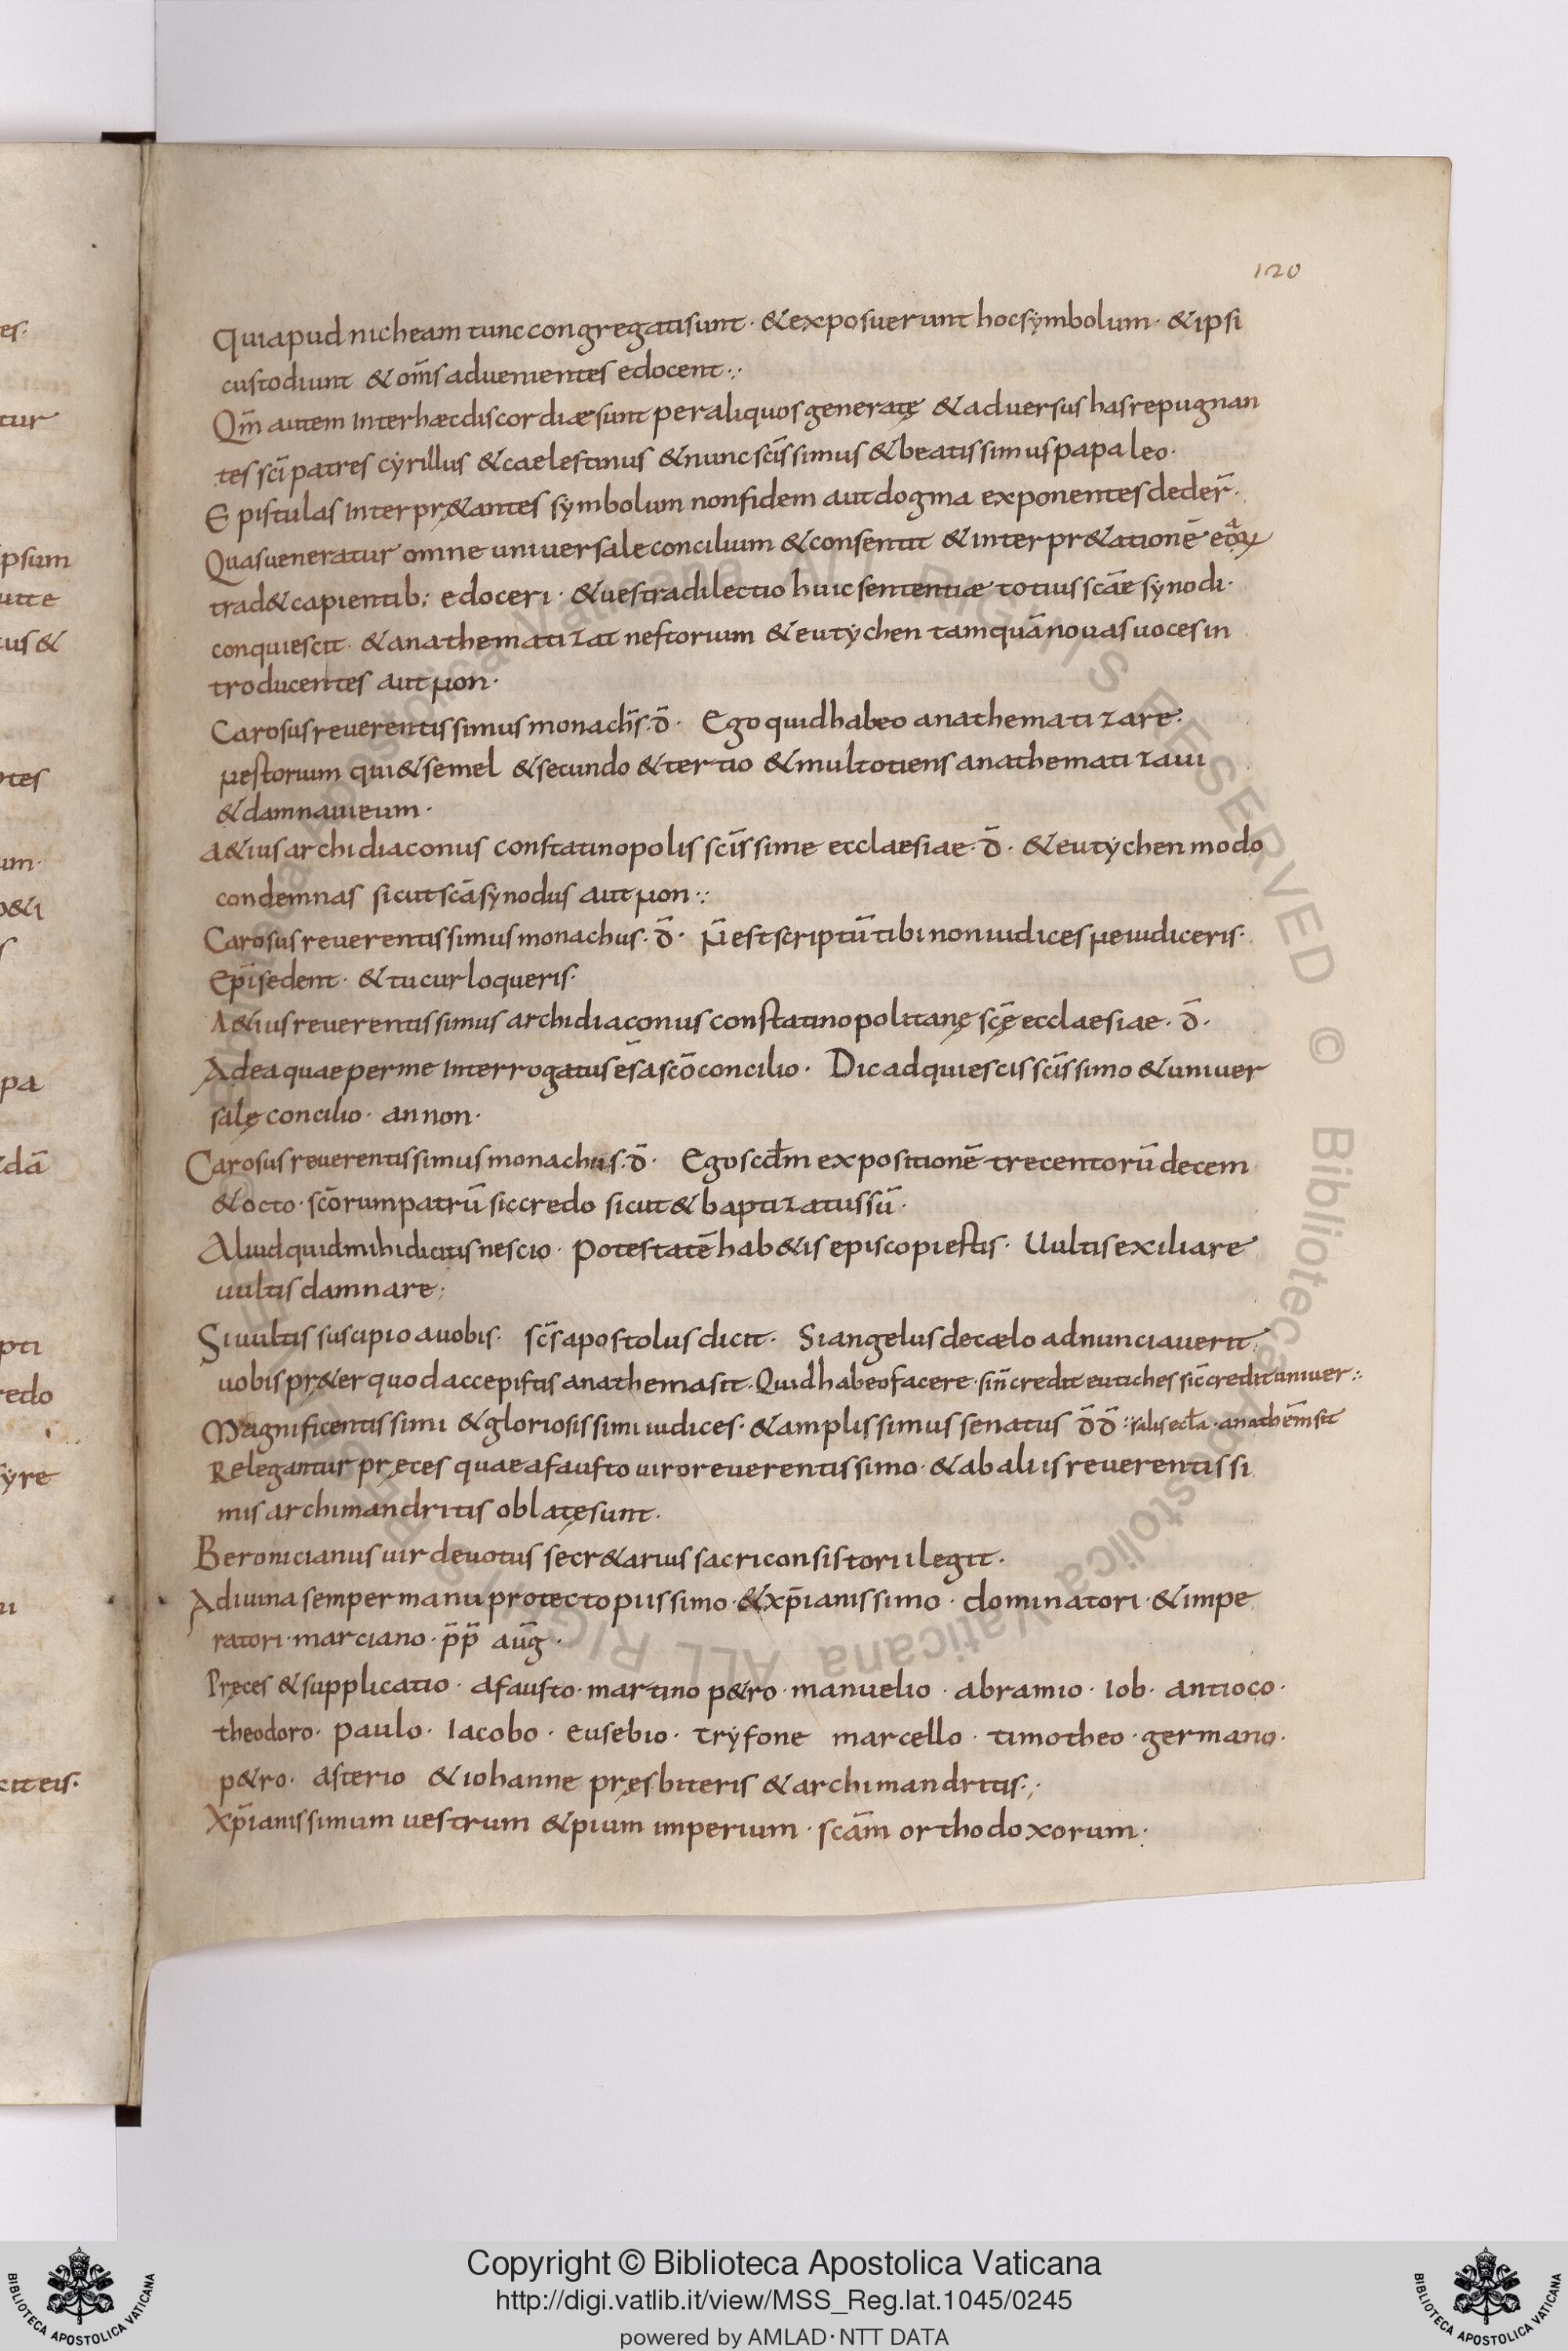 120
Qui apud nicheam tunc congregati sunt · & exposuerunt hoc symbolum · & ipsi
custodiunt & om̅s aduenientes edocent ·:
Qm̅ autem Inter hæc discordiæ sunt per aliquos generatę & aduersus has repugnan
tes sc̅i patres cyrillus & caelestinus & nunc sc̅issimus & beatissimus papa leo ·
Epistulas Interpr&antes symbolum non fidem aut dogma exponentes deder̅ ·
Quas ueneratur omne uniuersale concilium & consentit & interpr&atione̅
trad& capientib; edoceri · & uestra dilectio huic sententiæ totius sc̅ae synodi ·
conquiescit · & anathematizat nestorium & eutychen tamqua̅ nouas uoces in
troducentes aut Non ·
Carosus reuerentissimus monach̅s · d̅ · Ego quid habeo anathematizare ·
Nestorium qui & semel & secundo & tertio & multotiens anathematizaui
& damnaui eum ·
A&ius archidiaconus constatinopolis sc̅issime ecclaesiae · d̅ · & eutychen modo
condemnas sicut sc̅a synodus aut Non ·:
Carosus reuerentissimus monachus · d̅ · N̅ est scriptu̅ tibi non iudices Ne iudiceris ·
Ep̅i sedent · & tu cur loqueris ·
A&ius reuerentissimus archidiaconus constatinopolitanę sc̅ę ecclaesiae · d̅ ·
Ad ea quae per me Interrogatus es̅ a sc̅o concilio · Dic adquiescis sc̅issimo & uniuer
salę concilio · an non ·
Carosus reuerentissimus monachus · d̅ · Ego scd̅m expositione̅ trecentoru̅ decem
& octo · sc̅orum patru̅ sic credo sicut & baptizatus su̅ ·
Aliud quid mihi dicitis nescio · Potestate̅ hab&is episcopi estis · Uultis exiliare
uultis damnare ;
Si uultis suscipio a uobis · sc̅s apostolus dicit · Si angelus de cælo adnunciauerit
uobis pr&er quod accepistis anathema sit · Quid habeo facere · sin̅ credit eutiches sic̅ credit uniuer ·:
Magnificentissimi & gloriosissimi iudices · & amplissimus senatus d̅d̅ ·: salis eccl̅a · anathe̅m sit
Relegantur pręces quae a fausto uiro reuerentissimo · & ab aliis reuerentissi
mis archimandritis oblatę sunt ·
Beronicianus uir deuotus secr&arius sacri consistorii legit ·
A diuina semper manu protecto piissimo · & xp̅ianissimo · dominatori · & impe
ratori · marciano · p̅p̅ au̅g ·
Pręces & supplicatio · a fausto · martino p&ro · manuelio · abramio · Iob · antioco ·
theodoro · paulo · Iacobo · eusebio · tryfone marcello · timotheo · germano ·
p&ro · asterio & iohanne pręsbiteris & archimandritis ·;
Xp̅ianissimum uestrum & pium imperium · sc̅am orthodoxorum ·
Copyright © Biblioteca Apostolica Vaticana
http://digi.vatlib.it/view/MSS_Reg.lat.1045/0245
powered by AMLAD·NTT DATA